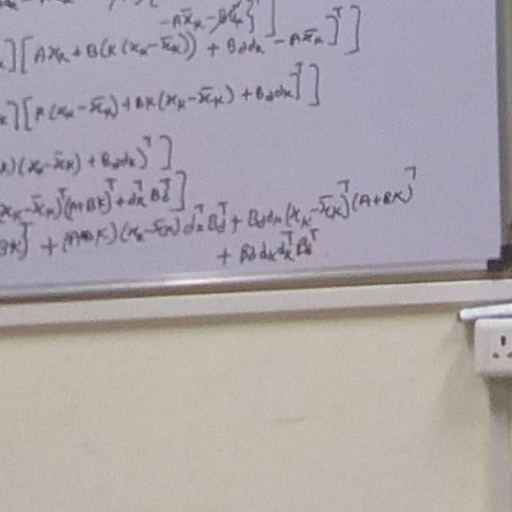 -Ax̄ₖ - B
][Axₖ + B(K(xₖ-x̄ₖ)) + B_d dₖ - Ax̄ₖ]ᵀ]
][A(xₖ-x̄ₖ) + BK(xₖ-x̄ₖ) + B_d dₖ]ᵀ]
)(xₖ-x̄ₖ) + B_d dₖ)ᵀ]
xₖ-x̄ₖ)ᵀ(A+BK)ᵀ + dₖᵀ B_dᵀ]
BK)ᵀ + (A+BK)(xₖ-x̄ₖ)dₖᵀB_dᵀ + B_d dₖ(xₖ-x̄ₖ)ᵀ(A+BK)ᵀ
+ B_d dₖdₖᵀB_dᵀ